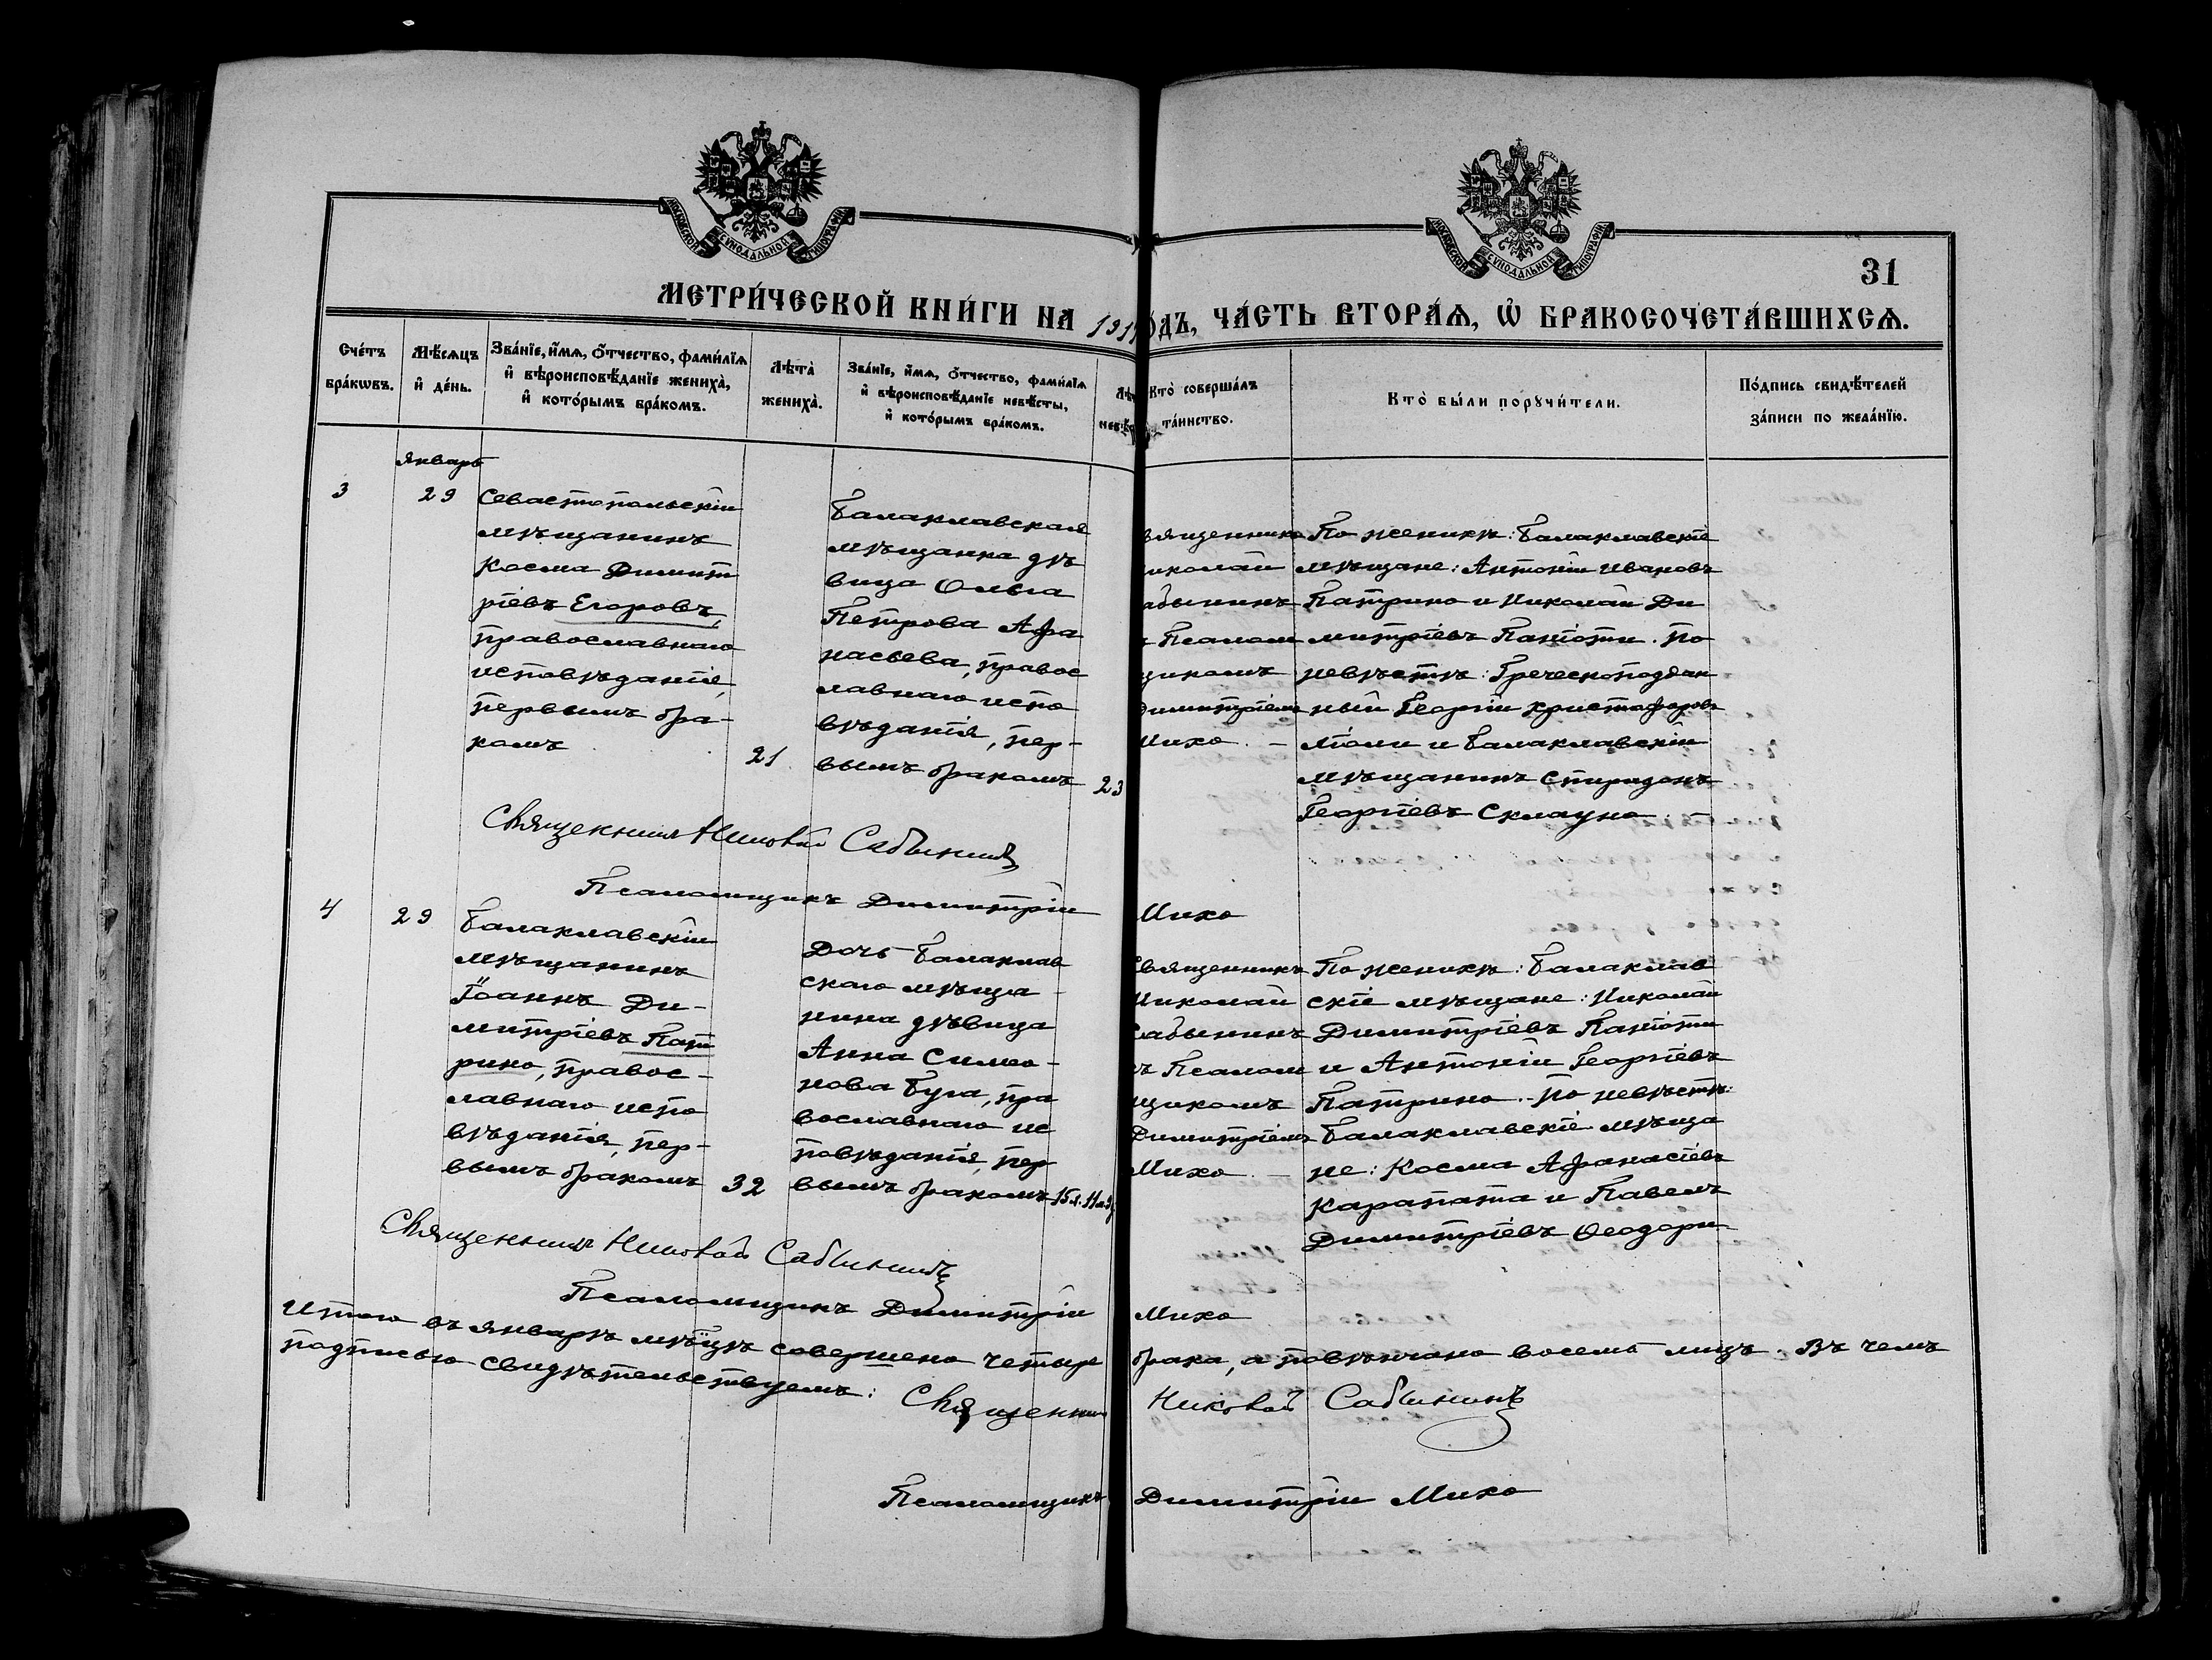 МОСКОВСКОЙ СУНОДАЛЬНОЙ ТИПОГРАФІИ
МОСКОВСКОЙ СУНОДАЛЬНОЙ ТИПОГРАФІИ
31
МЕТРИ́ЧЕСКОЙ КНИ́ГИ НА 191 ОДЪ, ЧА́СТЬ ВТОРА́Ѧ, Ѡ҆ БРАКОСОЧЕТА́ВШИХСѦ.
Сче́тъ
бра́кѡвъ.
Мѣ́сѧцъ
и҆ де́нь.
Зва́нїе, и҆́мѧ, ѻ҆́тчество, фами́лїѧ
и҆ вѣроисповѣ́данїе жениха̀,
и҆ кото́рымъ бра́комъ.
Лѣта̀
жениха̀.
Зва́нїе, и҆́мѧ, ѻ҆́тчество, фами́лїѧ
и҆ вѣроисповѣ́данїе невѣ́сты,
и҆ кото́рымъ бра́комъ.
Лѣ
невѣ́с
Кто̀ соверша́лъ
та́инство.
Кто̀ бы́ли порꙋчи́тели.
По́дпись свидѣ́телей
за́писи по жела́нїю.
Январь
3
29
Севастопольскій
мѣщанинъ
Косма Димит
ріевъ Егоровъ,
православнаго
исповѣданія,
первымъ бра-
комъ
21
Балаклавская
мѣщанка дѣ
вица Ольга
Петрова Афа
насьева, правос
лавнаго испо
вѣданія, пер-
вымъ бракомъ
23
вященникъ
иколай
абынинъ
ъ Псалом
щикомъ
Димитріемъ
Михо. –
По женихѣ: Балаклавскіе
мѣщане: Антоній Ивановъ
Патрино и Николай Ди
митріевъ Панiоти. По
невѣстѣ: Греческоподдан
ный Георгій Христофоровъ
Міоли и Балаклавскій
мѣщанинъ Спиридонъ
Георгіевъ Склауно. –
Священникъ Николай Сабынинъ
Псаломщикъ Димитрій Михо
4
29
Балаклавскій
мѣщанинъ
Іоаннъ Ди-
митріевъ Пат
рино, правос-
лавнаго испо
вѣданія, пер-
вымъ бракомъ
32
Дочь Балаклав
скаго мѣща-
нина дѣвица
Анна Симео-
нова Буга, пра
вославнаго ис
повѣданія, пер
вымъ бракомъ
15 л. 11 м.
Священникъ
Николай
Сабынинъ
ъ Псалом
щикомъ
Димитріемъ
Михо. –
По женихѣ: Балаклав
скіе мѣщане: Николай
Димитріевъ Панiоти
и Антоній Георгіевъ
Патрино. – По невѣстѣ:
Балаклавскіе мѣща
не: Косма Афанасіевъ
Карапата и Павелъ
Димитріевъ Ѳеодори
Священникъ Николай Сабынинъ
Псаломщикъ Димитрій Михо
Итого въ январѣ мѣсяцѣ совершено четыре брака, а повѣнчано восемь лицъ. Въ чемъ
подписью свидѣтельствуемъ: Священник Николай Сабынинъ
Псаломщикъ Димитрій Михо